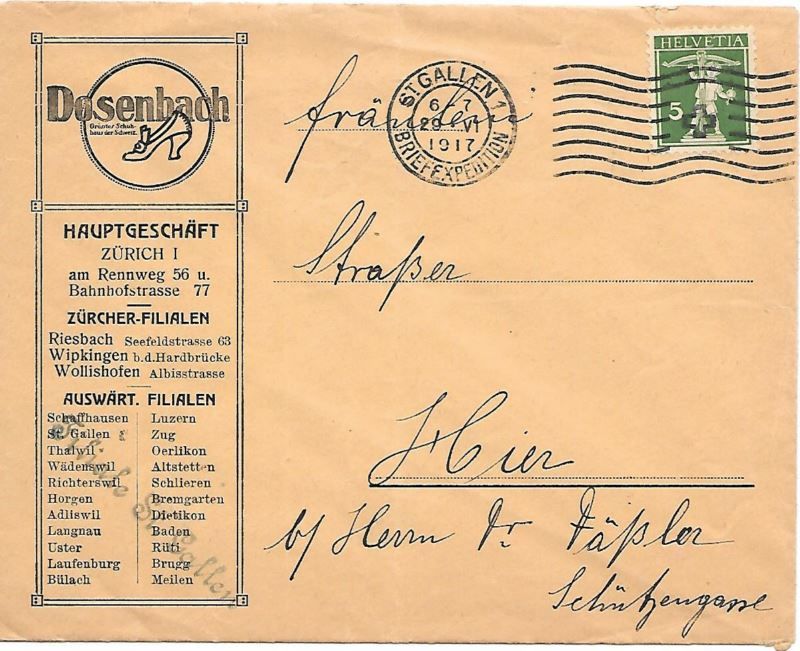 Dosenbach
Grösstes Schuh-
haus der Schweiz.
HAUPTGESCHÄFT
ZÜRICH I
am Rennweg 56 u.
Bahnhofstrasse 77
ZÜRCHER-FILIALEN
Riesbach Seefeldstrasse 63
Wipkingen b.d.Hardbrücke
Wollishofen Albisstrasse
AUSWÄRT. FILIALEN
Schaffhausen Luzern
St. Gallen Zug
Thalwil Oerlikon
Wädenswil Altstetten
Richterswil Schlieren
Horgen Bremgarten
Adliswil Dietikon
Langnau Baden
Uster Rüti
Laufenburg Brugg
Bülach Meilen
Filiale St. Gallen
ST. GALLEN 1
6 7
29 VI
1917
BRIEFEXPEDITION
HELVETIA
5
Fräulein
Straßer
Hier
b/ Herrn Dr. Fäßler
Schützengasse